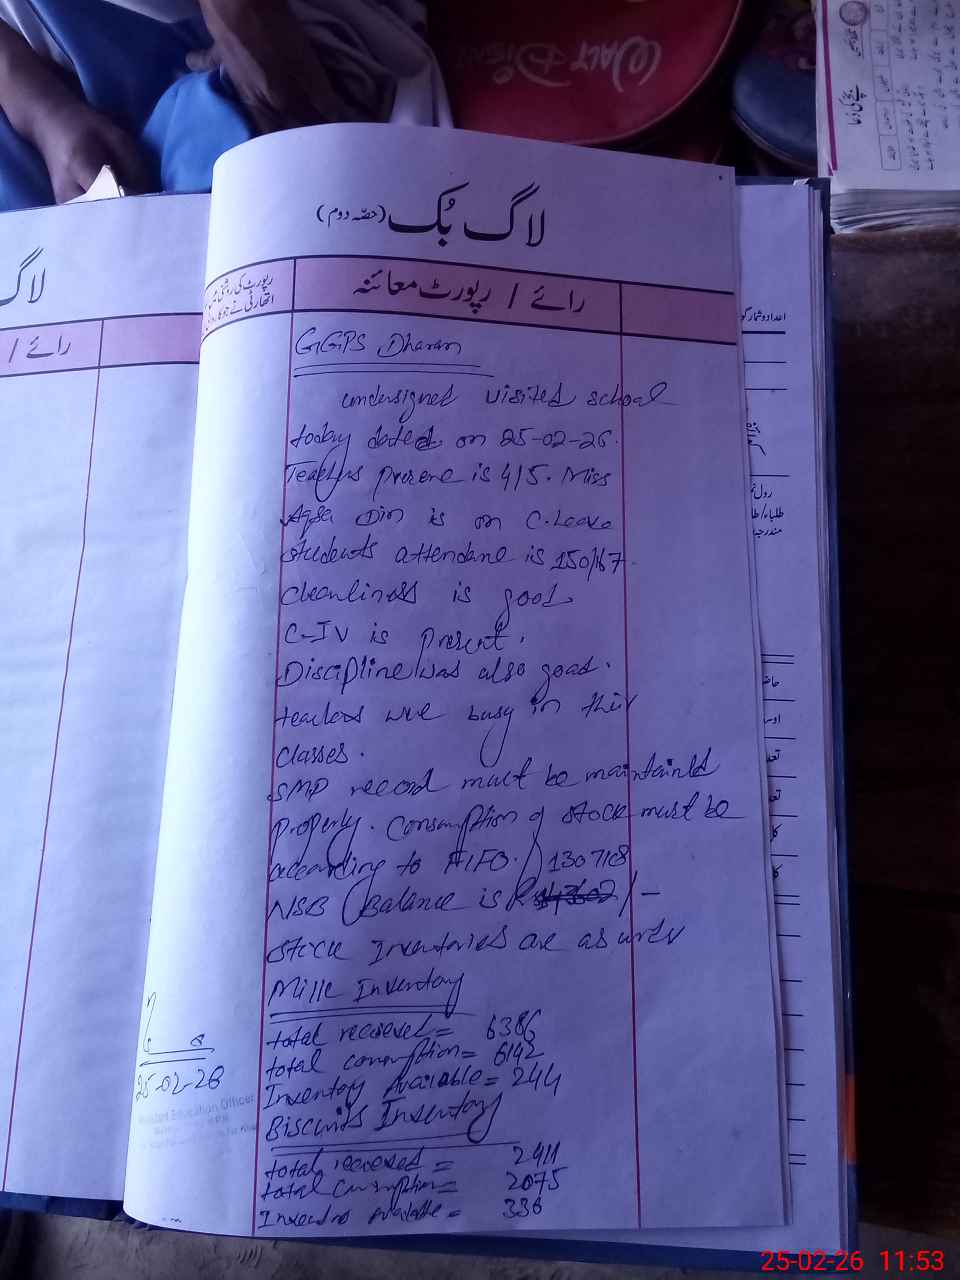 WALT DISNEY
لاگ بُک (حصّہ دوم)
رائے / رپورٹ معائنہ
رپورٹ کی روشنی میں
اتھارٹی نے جو کارروائی
لاگ
رائے /
اعداد و شمار
GGPS Dharam
undersigned visited school
today dated on 25-02-26.
Teachers presene is 4/5. Miss
Aqsa Din is on C.Leave
students attendane is 150/167.
cleanliness is good.
C-IV is present.
Discipline was also good.
teachers were busy in their
classes.
SMP record must be maintained
properly. Consumption of stock must be
according to FIFO. 130718
NSB Balance is Rs /-
stock Inventories are as under
Milk Inventory
total recieved = 6386
total consumption = 6142
Inventory Available = 244
Biscuits Inventory
total recieved = 2411
total consumption = 2075
Inventory available = 336
25-02-26
Assistant Education Officer
25-02-26 11:53